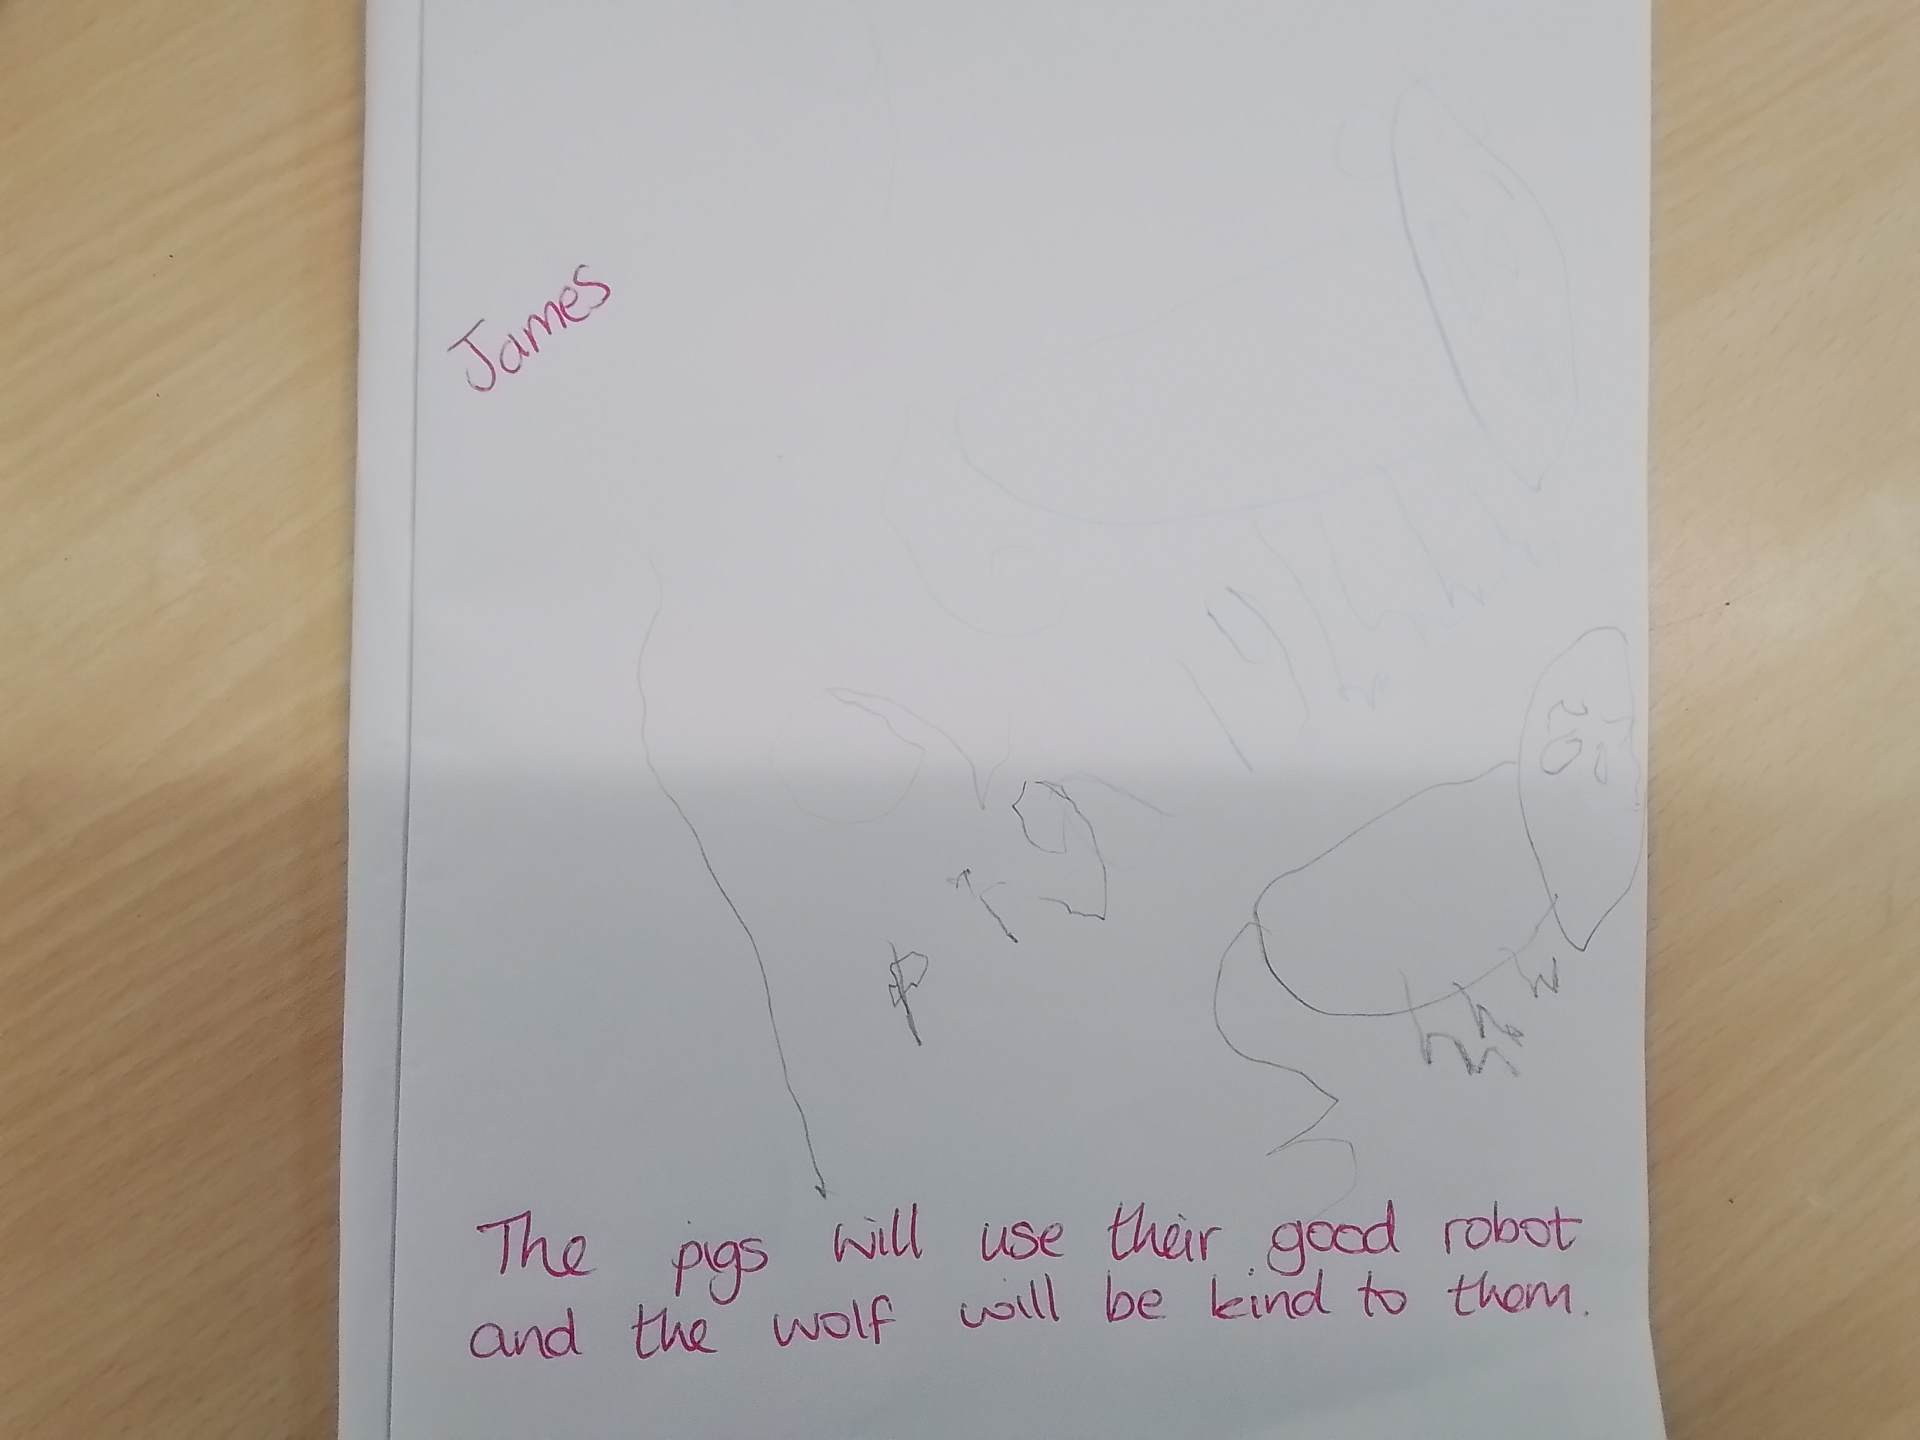 James
The pigs will use their good robot
and the wolf will be kind to them.